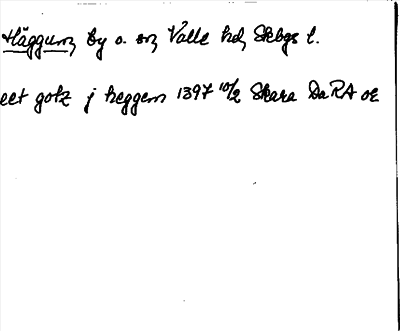 Häggum, by o. sn, Valle hd, Skbgs l.
eet gotz j heggem 1397 10/2 Skara DaRA or